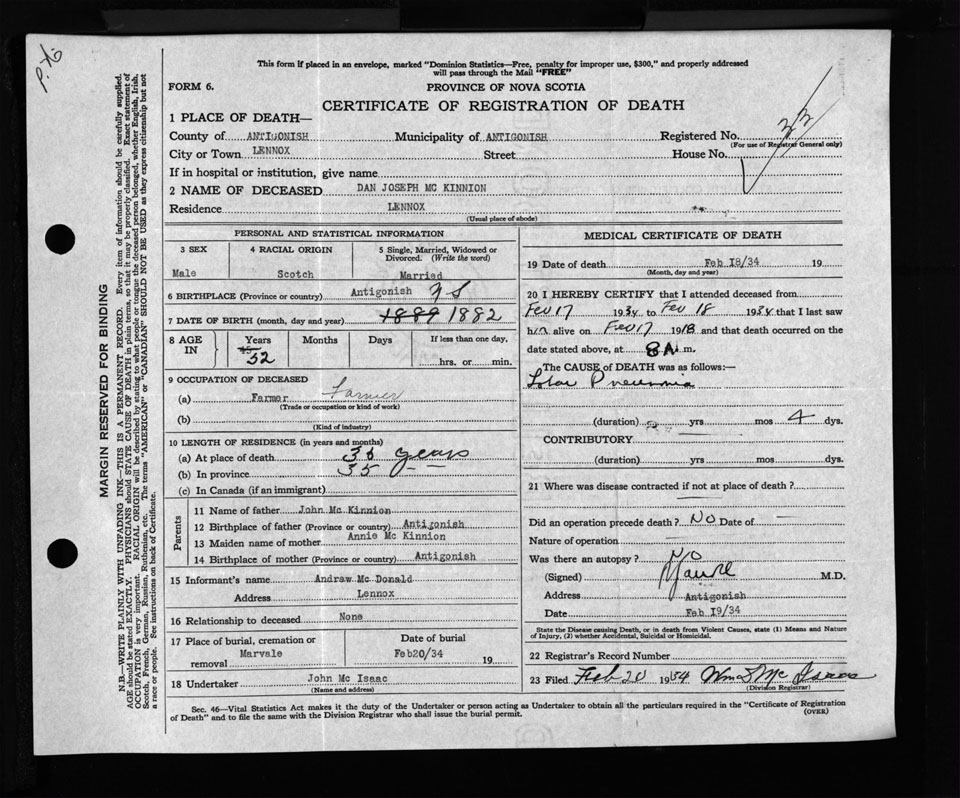 P.X6
This form if placed in an envelope, marked "Dominion Statistics—Free, penalty for improper use, $300," and properly addressed
will pass through the Mail "FREE"
FORM 6. PROVINCE OF NOVA SCOTIA
CERTIFICATE OF REGISTRATION OF DEATH
1 PLACE OF DEATH—
County of ANTIGONISH Municipality of ANTIGONISH Registered No. 33
(For use of Registrar General only)
City or Town LENNOX Street House No.
If in hospital or institution, give name
2 NAME OF DECEASED DAN JOSEPH MC KINNION
Residence LENNOX
(Usual place of abode)
PERSONAL AND STATISTICAL INFORMATION
3 SEX 4 RACIAL ORIGIN 5 Single, Married, Widowed or Divorced. (Write the word)
Male Scotch Married
6 BIRTHPLACE (Province or country) Antigonish N S
7 DATE OF BIRTH (month, day and year) 1889 1882
8 AGE IN Years Months Days If less than one day,
45 52 hrs. or min.
9 OCCUPATION OF DECEASED
(a) Farmer Farmer
(Trade or occupation or kind of work)
(b)
(Kind of industry)
10 LENGTH OF RESIDENCE (in years and months)
(a) At place of death 35 years
(b) In province 35 — —
(c) In Canada (if an immigrant)
Parents
11 Name of father John Mc Kinnion
12 Birthplace of father (Province or country) Antigonish
13 Maiden name of mother Annie Mc Kinnion
14 Birthplace of mother (Province or country) Antigonish
15 Informant's name Andraw Mc Donald
Address Lennox
16 Relationship to deceased None
17 Place of burial, cremation or removal Date of burial
Marvale Feb20/34 19
18 Undertaker John Mc Isaac
(Name and address)
MEDICAL CERTIFICATE OF DEATH
19 Date of death Feb I8/34 19
(Month, day and year)
20 I HEREBY CERTIFY that I attended deceased from
Feb 17 1934 to Feb 18 1934 that I last saw
h alive on Feb 17 19 and that death occurred on the
date stated above, at 8 A m.
The CAUSE of DEATH was as follows:—
Lobar Pneumonia
(duration) yrs mos 4 dys.
CONTRIBUTORY
(duration) yrs mos dys.
21 Where was disease contracted if not at place of death?
Did an operation precede death? No Date of
Nature of operation
Was there an autopsy? No
(Signed) M.D.
Address Antigonish
Date Feb I9/34
State the Disease causing Death, or in death from Violent Causes, state (1) Means and Nature
of Injury, (2) whether Accidental, Suicidal or Homicidal.
22 Registrar's Record Number
23 Filed Feb 20 1934 Wm Mc Isaac
(Division Registrar)
Sec. 46—Vital Statistics Act makes it the duty of the Undertaker or person acting as Undertaker to obtain all the particulars required in the "Certificate of Registration
of Death" and to file the same with the Division Registrar who shall issue the burial permit. (OVER)
MARGIN RESERVED FOR BINDING
N.B.—WRITE PLAINLY WITH UNFADING INK—THIS IS A PERMANENT RECORD. Every item of information should be carefully supplied.
AGE should be stated EXACTLY. PHYSICIANS should STATE CAUSE OF DEATH in plain terms, so that it may be properly classified. Exact statement of
OCCUPATION is very important. RACIAL ORIGIN will be described by stating to what people or tongue the deceased person belonged, whether English, Irish,
Scotch, French, German, Russian, Ruthenian, etc. The terms "AMERICAN" or "CANADIAN" SHOULD NOT BE USED as they express citizenship but not
a race or people. See instructions on back of Certificate.